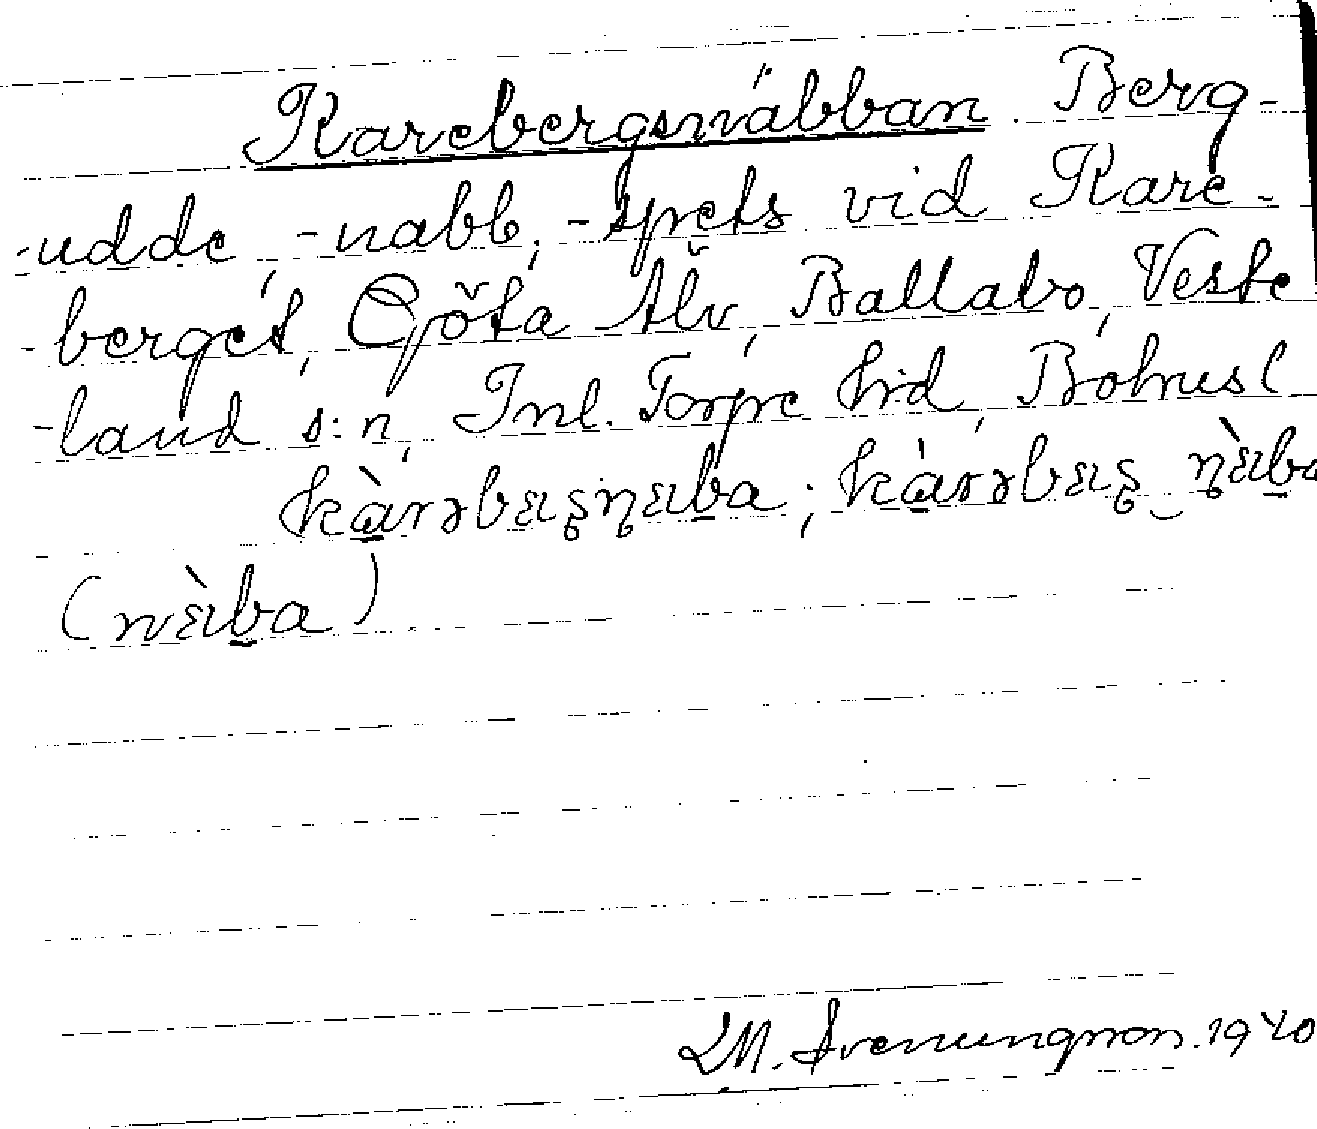 Karebergsnäbban. Berg-
-udde, -nabb, -spets vid Kare-
-berget, Göta Älv, Ballabo, Veste
-land s:n, Inl. Torpe hrd, Bohusl
kàrəbæıʂɳɛıba; kàrəbæıʂ ɳɛ̀ıba
(nɛ̀ıba)
LM. Svenungsson. 1940